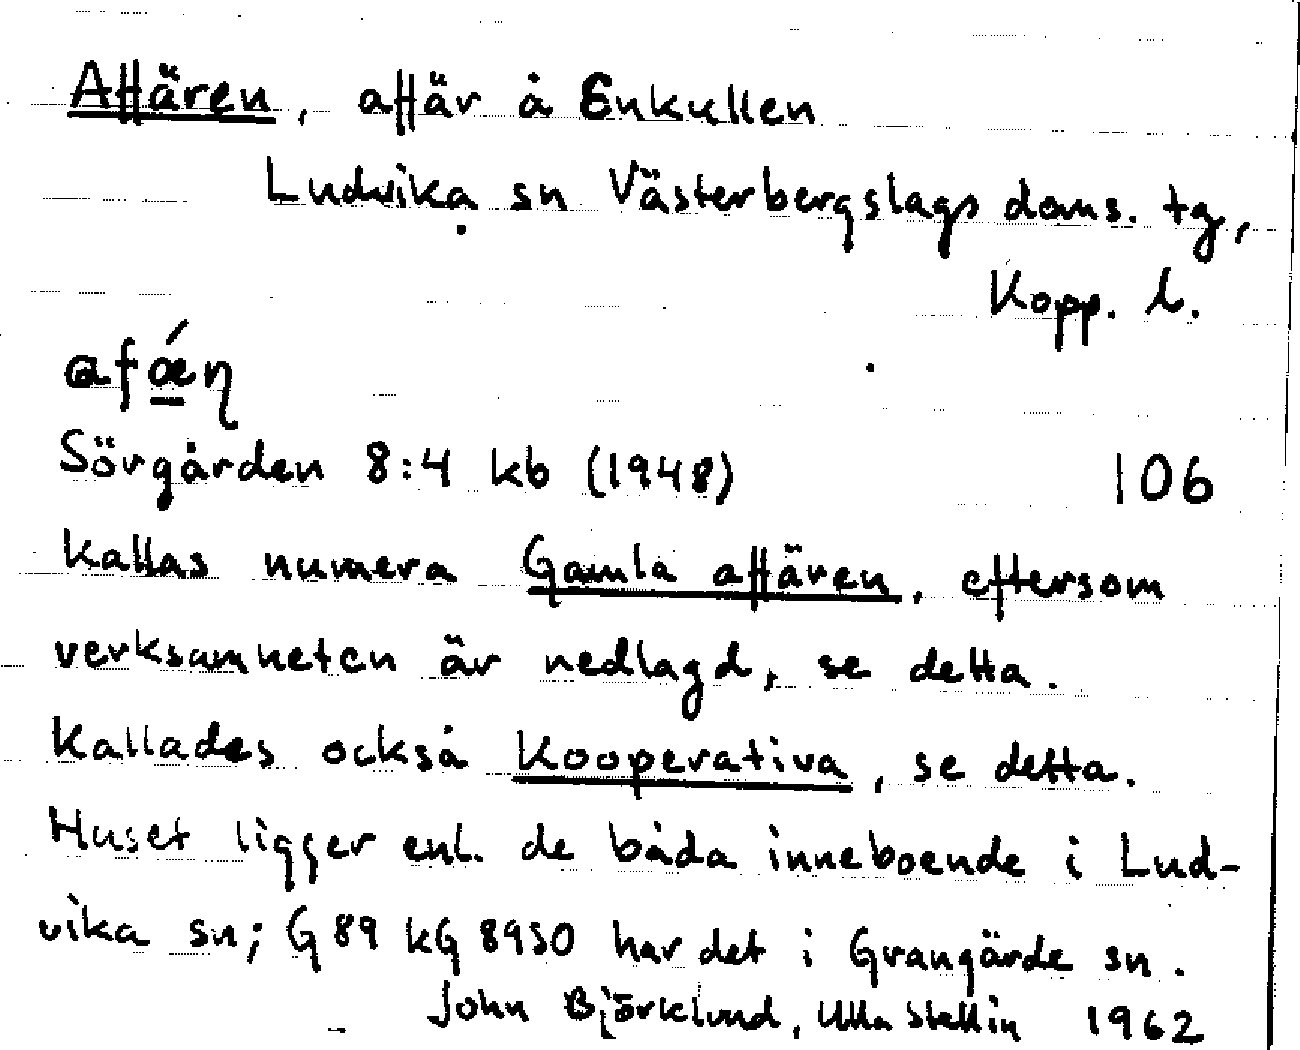 Affären, affär å Enkullen
Ludvika sn Västerbergslags doms. tg,
Kopp. l.
afǽn
Sörgården 8:4 kb (1948) 106
Kallas numera Gamla affären, eftersom
verksamheten är nedlagd, se detta.
Kallades också Kooperativa, se detta.
Huset ligger enl. de båda inneboende i Lud-
vika sn; G 89 kG 8950 har det i Grangärde sn.
John Björklund, Ulla Stellin 1962